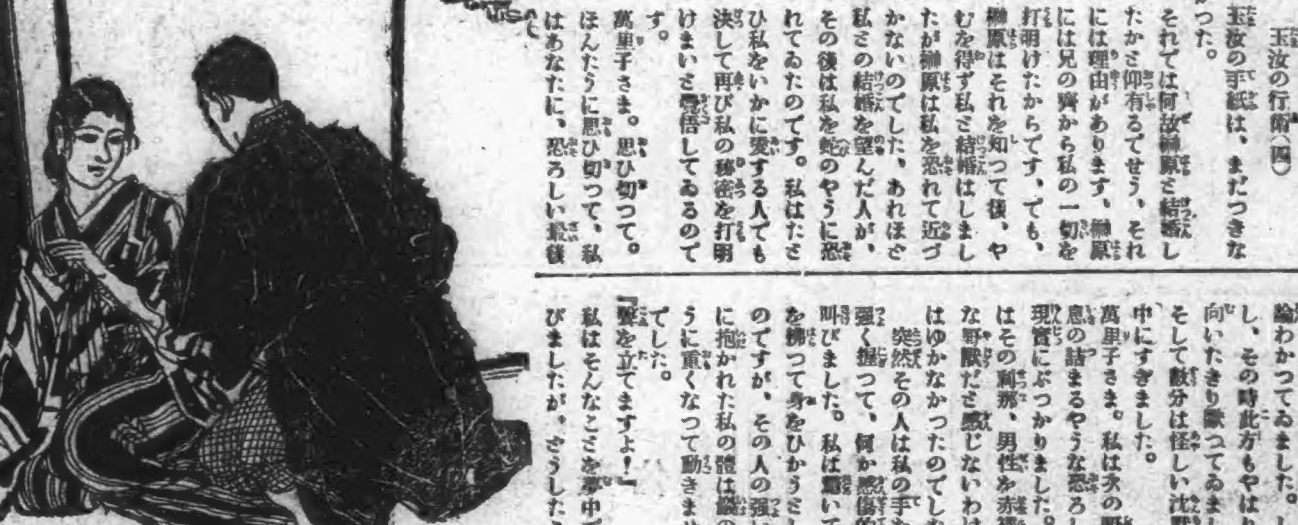 玉汝の行衛(四)
玉汝の手紙は、まだつきな
かつた。
それでは何故榊原と結婚し
たかと仰有るでせう、それ
には理由があります、榊原
には兄の齊から私の一切を
打明けたからです、でも、
榊原はそれを知つて後、や
むを得ず私と結婚はしまし
たが榊原は私を恐れて近づ
かないのでした、あれほど
私との結婚を望んだ人が、
その後は私を蛇のやうに恐
れてゐたのです。私はたと
ひ私をいかに愛する人でも
決して再び私の秘密を打明
けまいと覺悟してゐるので
す。
萬里子さま。思ひ切つて。
ほんたうに思ひ切つて、私
はあなたに、恐ろしい最後
論わかつてゐました。
し、その時此方もやは
向いたきり默つてゐま
そして數分は怪しい沈
中にすぎました。
萬里子さま。私は次の
息の詰まるやうな恐ろ
現實にぶつかりました。
はその刹那、男性を赤
な野獸だと感じないわけ
はゆかなかつたのでした
突然その人は私の手を
强く握つて、何か感傷的
叫びました。私は驚いて
を拂つて身をひかうとし
のですが、その人の强い
に抱かれた私の體は
うに重くなつて動きませ
でした。
『聲を立てますよ！』
私はそんなことを夢中で
びましたが、さうした